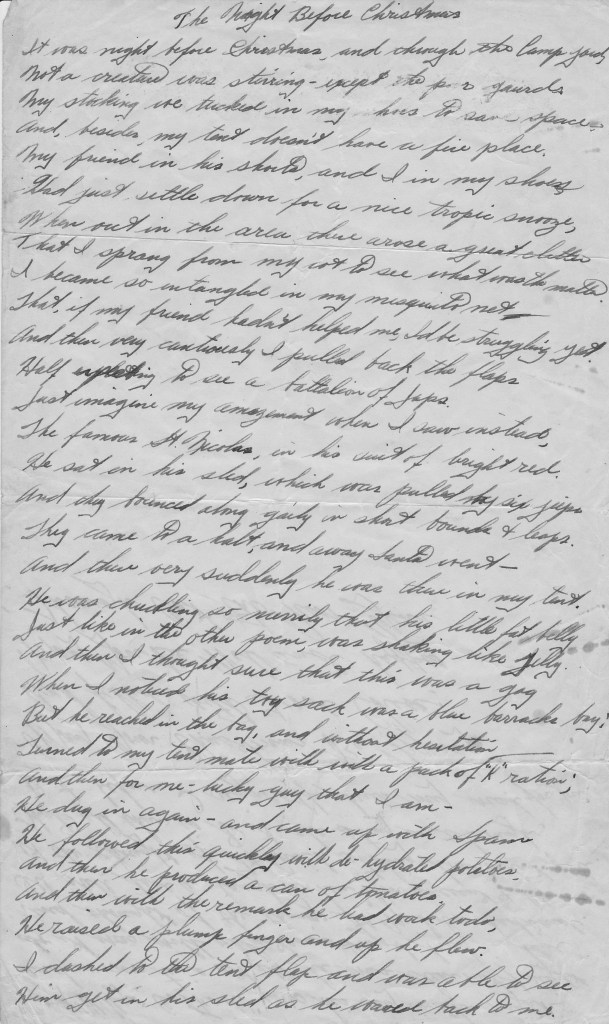 The Night Before Christmas
It was night before Christmas, and through the Camp yard,
Not a creature was stirring - except the guards
My stocking we tucked in my to save space.
And, besides, my tent doesn't have a fire place.
My friend in his shorts, and I in my shoes
Had just settle down for a nice tropic snooze,
When out in the area there arose a great clatter
That I sprang from my cot to see what was the matter.
I became so entangled in my mesquito net -
That, if my friend hadn't helped me, I'd be struggling yet.
And then very cautiously I pulled back the flaps
Half to see a battalion of Japs.
Just imagine my amazement when I saw instead,
The famous St. Nicolas, in his suit of bright red.
He sat in his sled, which was pulled by six
And they bounced along gaily in short bounds & leaps.
They came to a halt, and away Santa went -
And then very suddenly he was there in my tent.
He was chuckling so merrily that his little fat belly
Just like in the other poem, was shaking like Jelly.
And then I thought sure that this was a gag
When I noticed his toy sack was a blue barracks bag;
But he reached in the bag, and without hesitation
Turned to my tent mate with a pack of "K" ration;
And then for me - lucky guy that I am -
He dug in again - and came up with Spam
He followed this quickly with de-hydrated potatoes,
And then he produced a can of tomatoes.
And then with the remark he had work to do,
He raised a plump finger and up he flew.
I dashed to the tent flap and was able to see
Him get in his sled as he waved back to me.